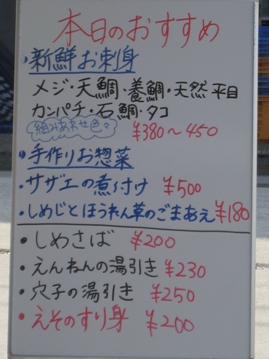 本日のおすすめ
・新鮮お刺身
メジ・天鯛・養鯛・天然平目
カンパチ・石鯛・タコ
組みあわせ色々
¥380〜450
・手作りお惣菜
・サザエの煮付け ¥500
・しめじとほうれん草のごまあえ ¥180
・しめさば ¥200
・えんねんの湯引き ¥230
・穴子の湯引き ¥250
・えそのすり身 ¥200